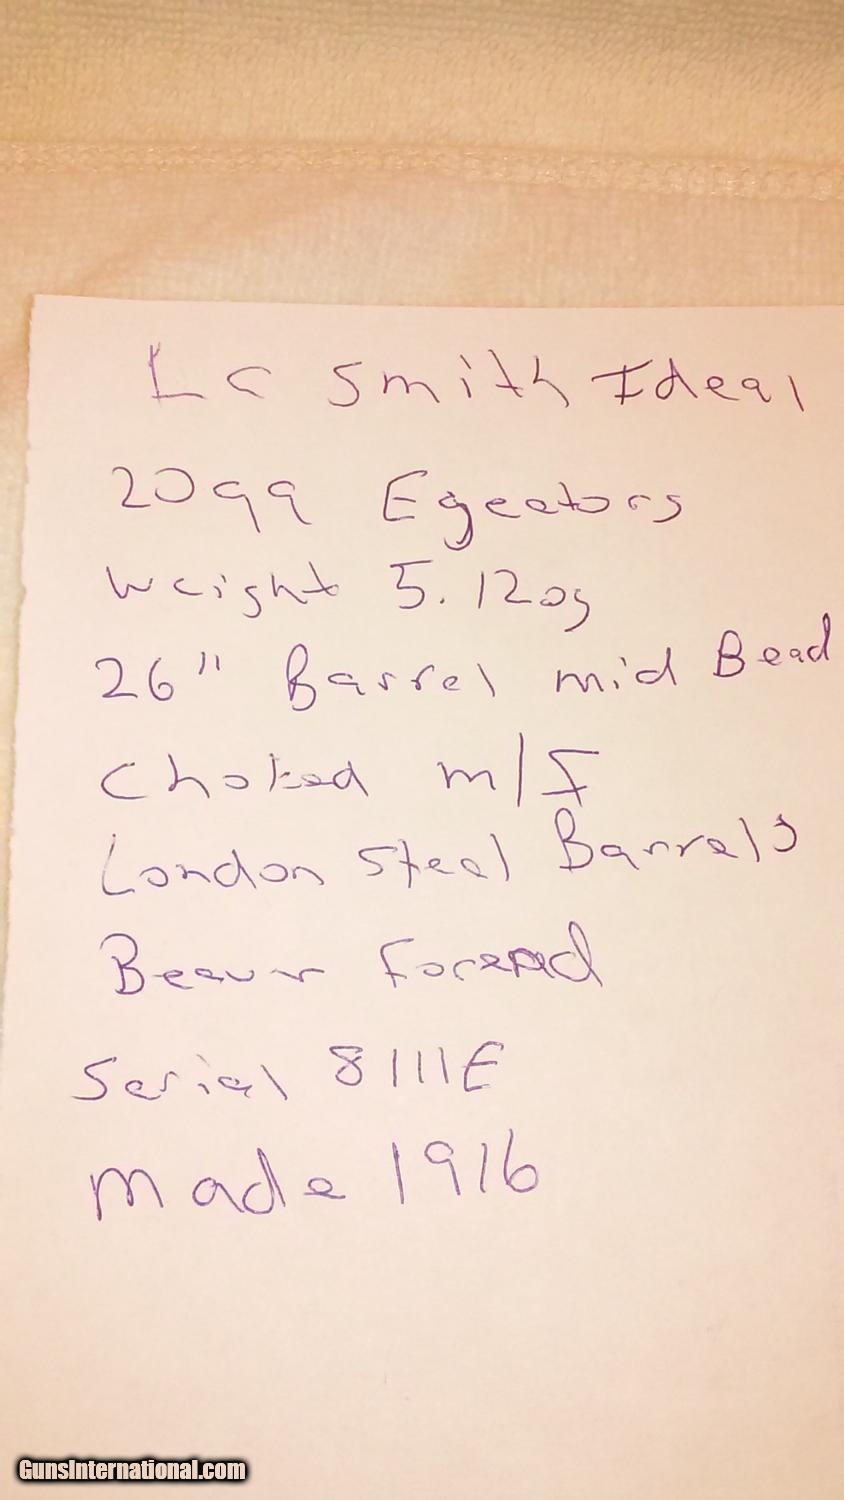 LC Smith Ideal
20ga Egeators
Weight 5.12oz
26" Barrel mid Bead
Choked m/I
London Steel Barrels
Beaver Forend
Serial 8111E
Made 1916
GunsInternational.com